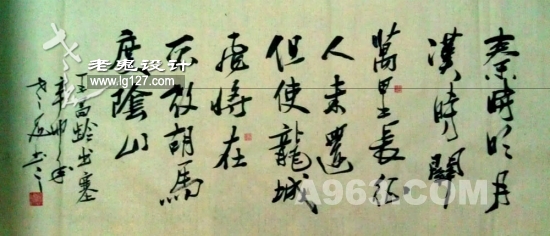 秦時明月
漢時關
萬里長征
人未還
但使龍城
飛將在
不教胡馬
度陰山
王昌齡出塞
辛卯
老鬼设计
www.lg127.com
A963.COM